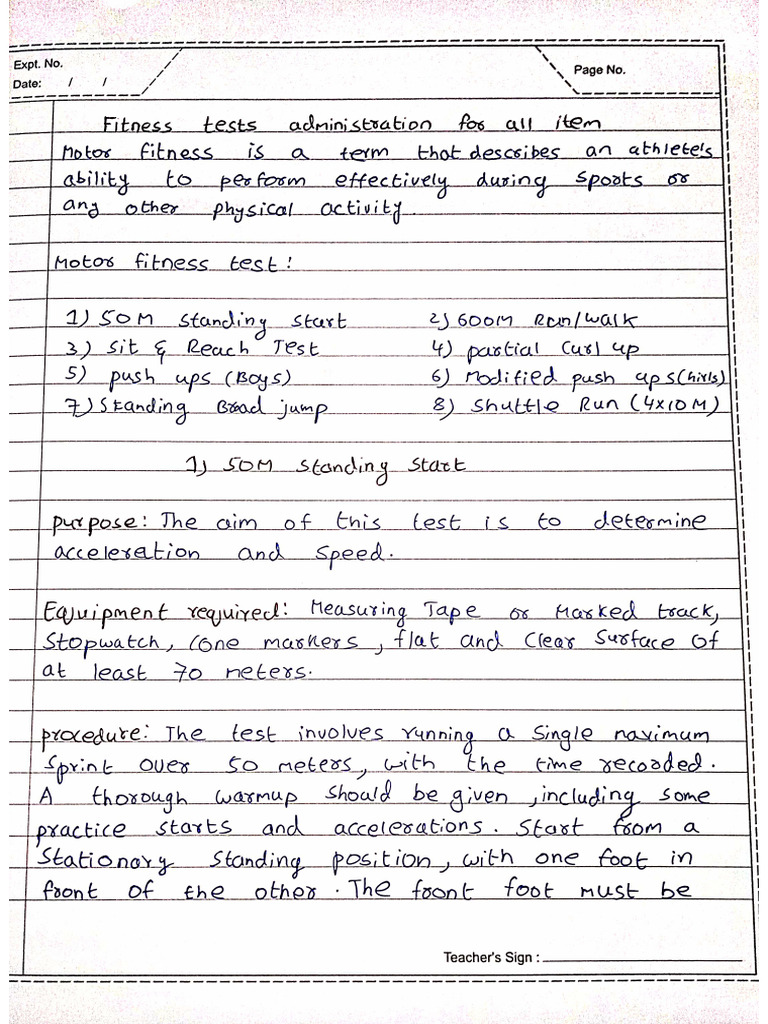 Expt. No.
Date: / /
Page No.
Fitness tests administration for all item
Motor fitness is a term that describes an athlete's
ability to perform effectively during sports or
any other physical activity.
Motor fitness test:
1) 50M Standing Start 2) 600M Run/Walk
3) Sit & Reach Test 4) partial Curl up
5) push ups (Boys) 6) Modified push ups (Girls)
7) Standing Broad jump 8) Shuttle Run (4x10M)
1) 50M Standing Start
purpose: The aim of this test is to determine
acceleration and speed.
Equipment required: Measuring Tape or Marked track,
Stopwatch, Cone markers, flat and Clear Surface of
at least 70 meters.
procedure: The test involves running a Single maximum
Sprint over 50 meters, with the time recorded.
A thorough warmup should be given, including some
practice starts and accelerations. Start from a
Stationary Standing position, with one foot in
front of the other. The front foot must be
Teacher's Sign :